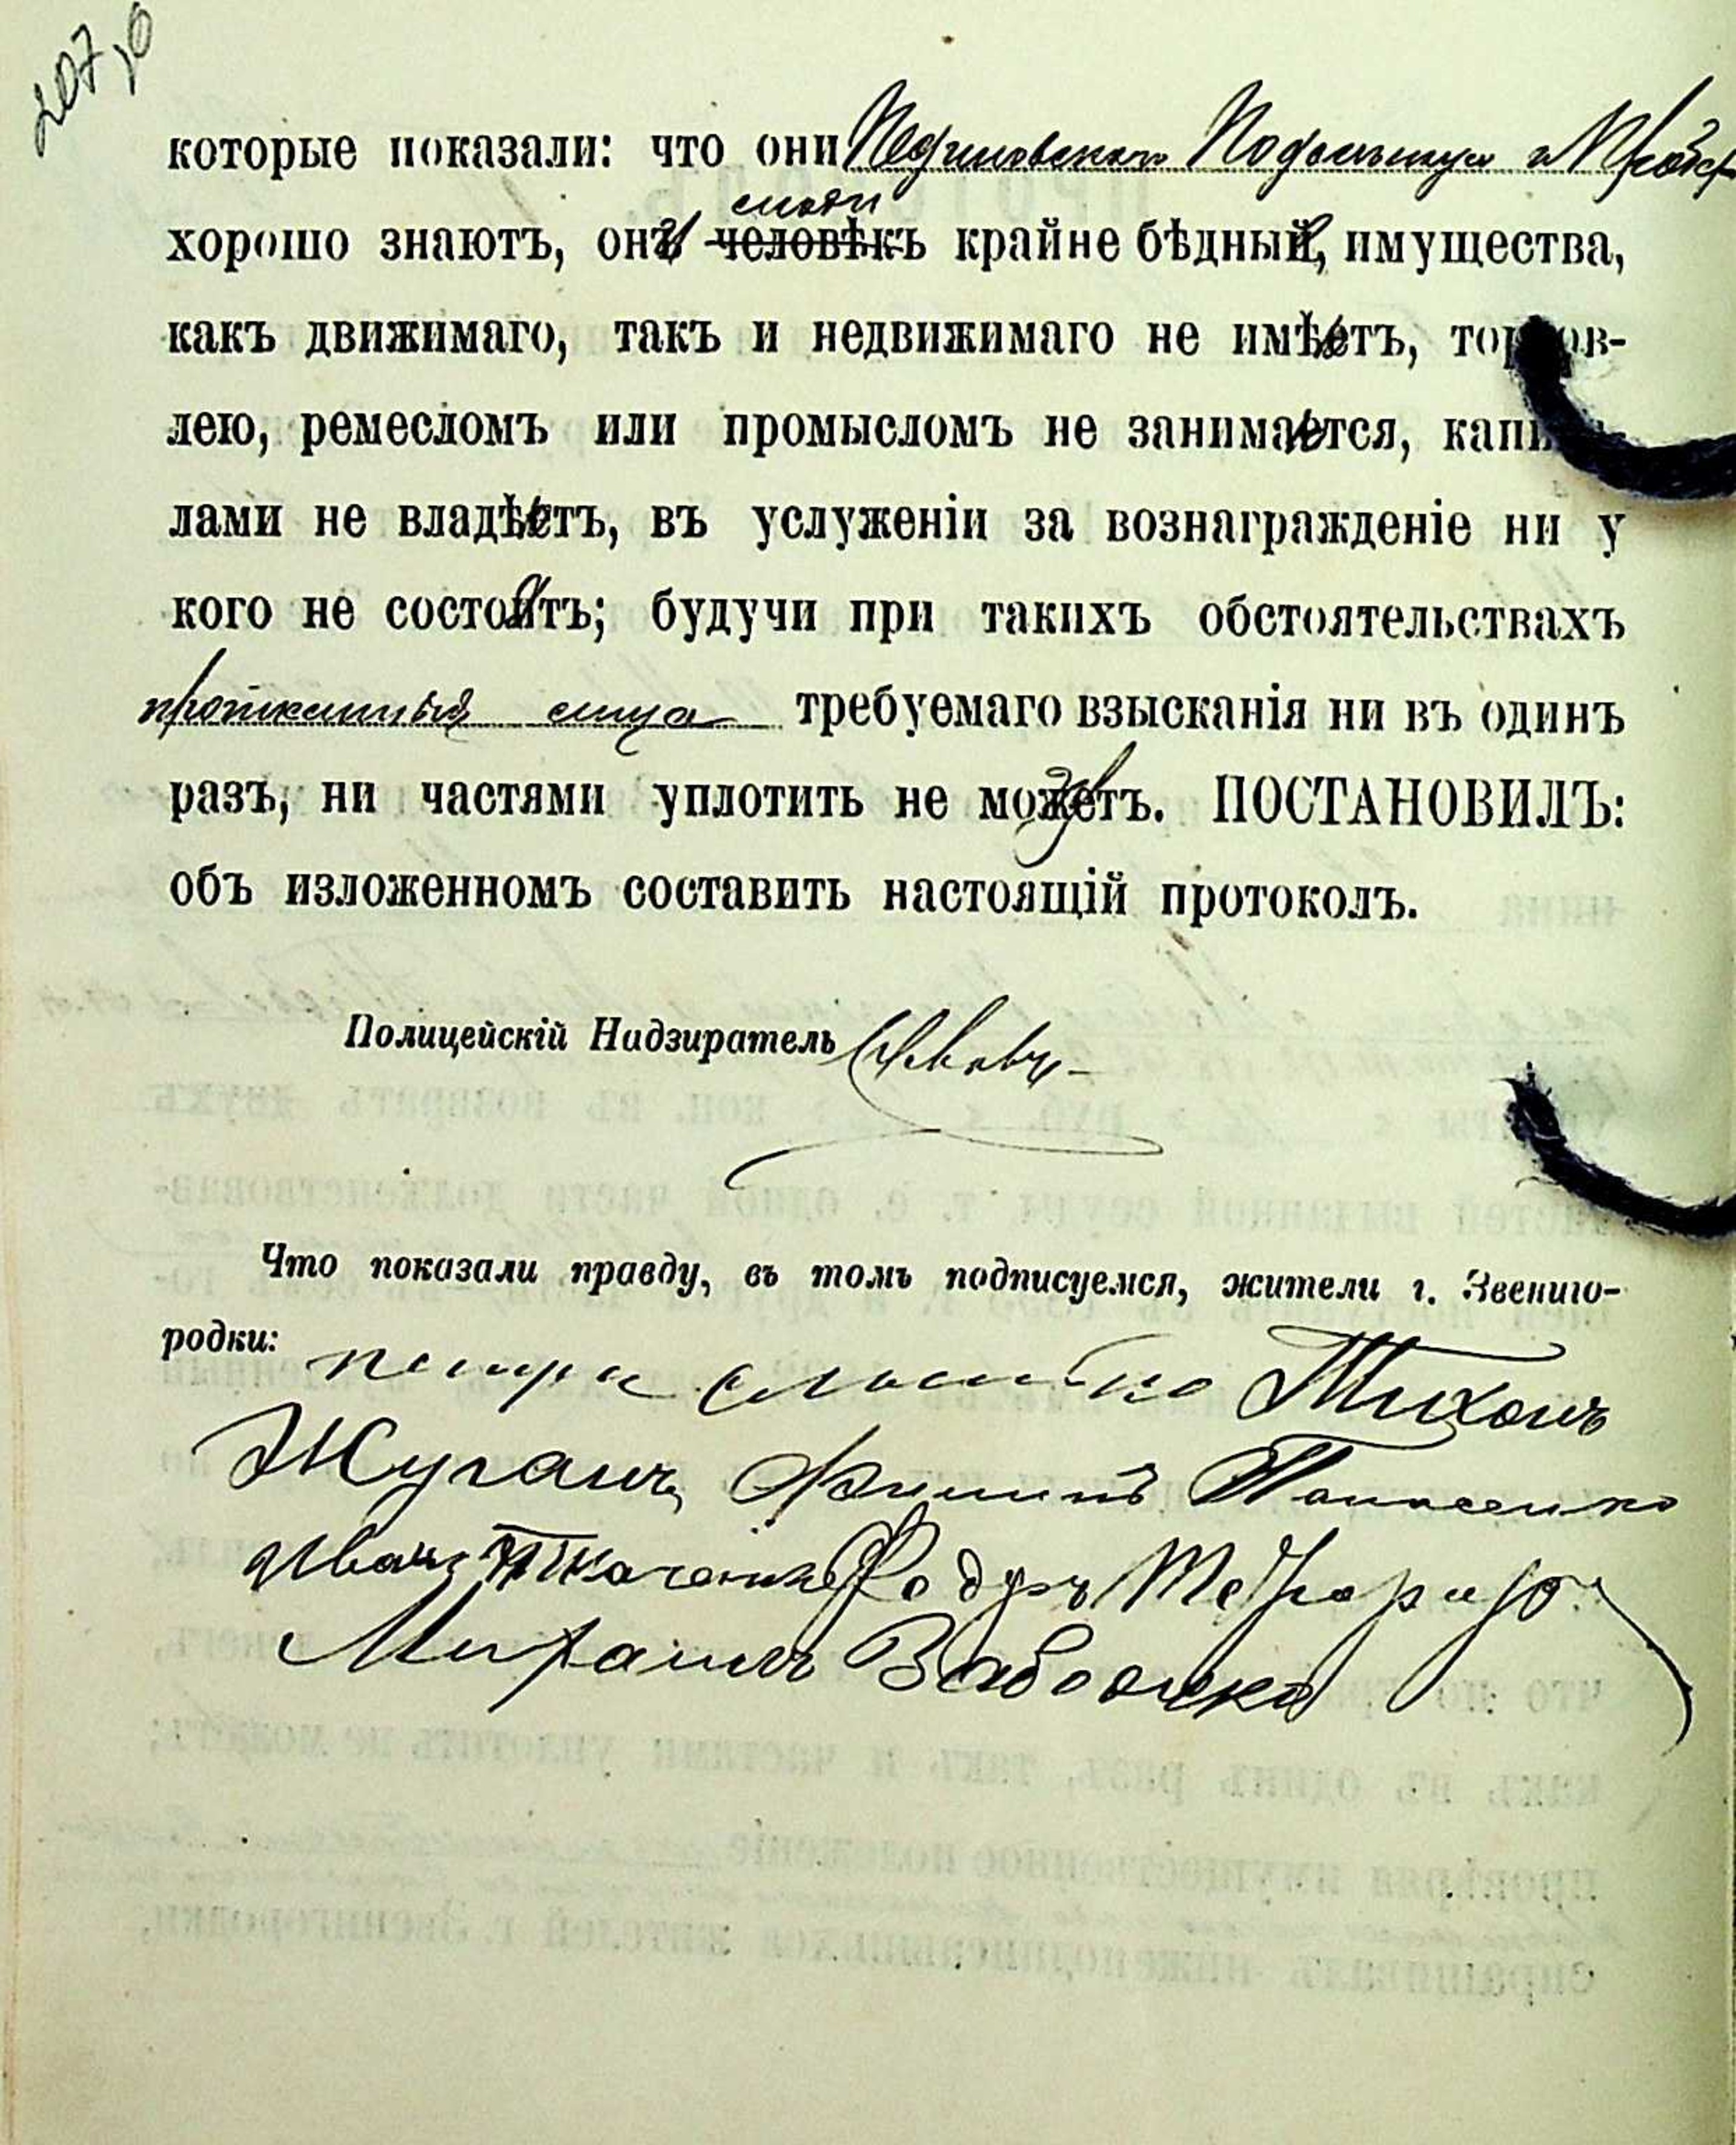 которые показали: что они
хорошо знаютъ, они люди крайне бѣдные, имущества,
какъ движимаго, такъ и недвижимаго не имѣютъ, торгов-
лею, ремесломъ или промысломъ не занимаются, капита-
лами не владѣютъ, въ услуженіи за вознагражденіе ни у
кого не состоятъ; будучи при такихъ обстоятельствахъ
требуемаго взысканія ни въ одинъ
разъ, ни частями уплотить не могутъ. ПОСТАНОВИЛЪ:
объ изложенномъ составить настоящій протоколъ.
Полицейскій Надзиратель
Что показали правду, въ томъ подписуемся, жители г. Звениго-
родки:
Тихонъ
Жуганъ Филипъ Панасенко
Иванъ Ткаченко Федоръ
Михаилъ